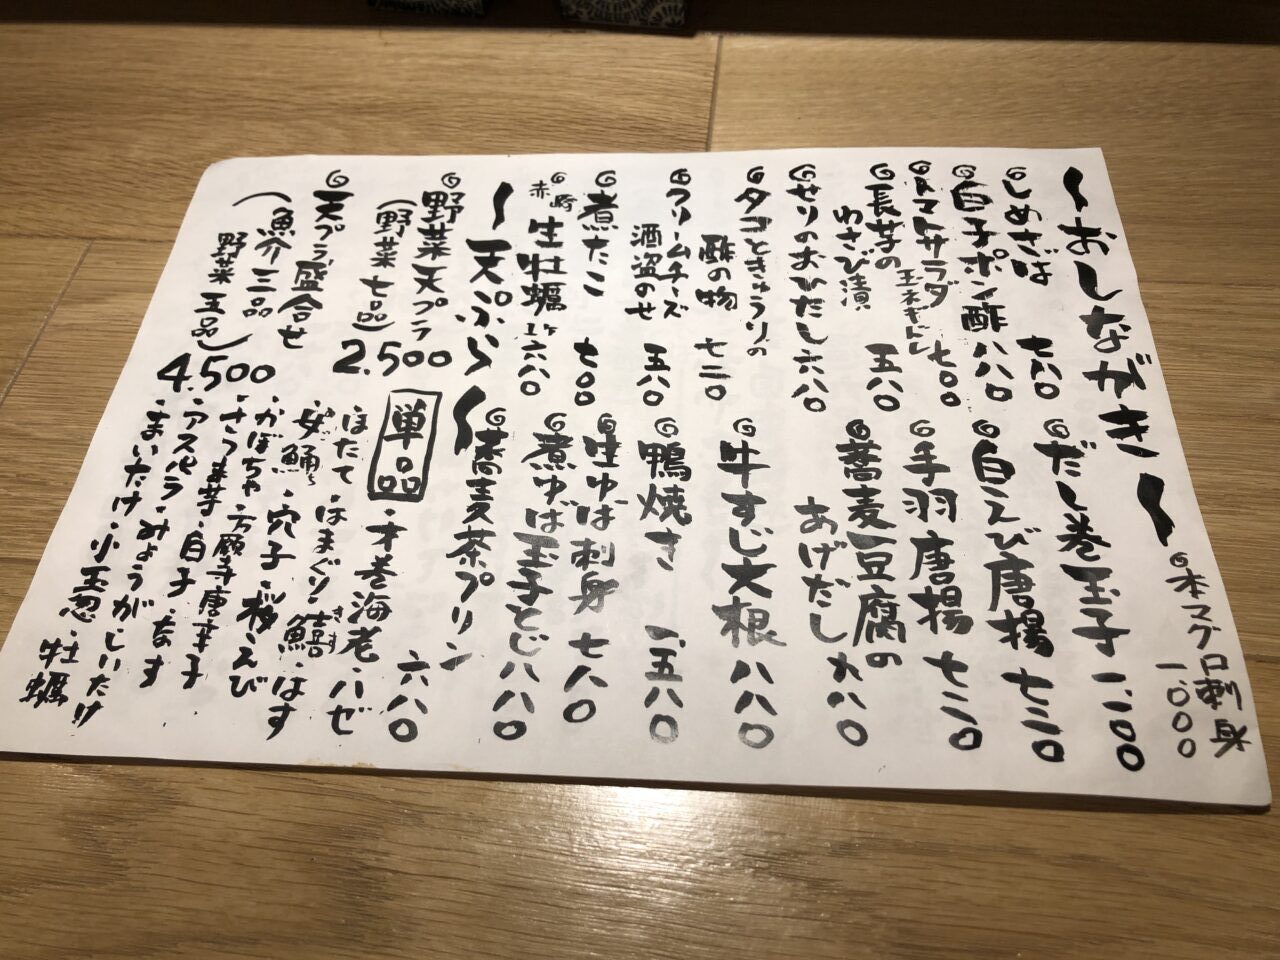 ～おしながき～
しめさば 七八〇
白子ポン酢 八八〇
トマトサラダ 七〇〇
玉ネギドレ
長芋の
わさび漬 五八〇
せりのおひたし 六八〇
タコときゅうりの
酢の物 七三〇
クリームチーズ
酒盗のせ 五八〇
煮たこ 七〇〇
生牡蠣 六八〇
本マグロ刺身
一.〇〇〇
だし巻玉子 一.一〇〇
白えび唐揚 七三〇
手羽唐揚
蕎麦豆腐の
あげだし 九八〇
牛すじ大根 八八〇
鴨焼き 一.五八〇
生ゆば刺身 七八〇
煮ゆば玉子とじ 八八〇
蕎麦茶プリン 六八〇
～天ぷら～
野菜天プラ
(野菜七品) 2.500
天プラ盛合せ
(魚介三品
野菜五品) 4.500
単品
・才巻海老・ハゼ
ほたて・はまぐり・鱚・はす
きす
穴子・桜えび
・かぼちゃ・万願寺唐辛子
・さつま芋・白子・なす
・アスパラ・みょうが・しいたけ
・まいたけ・小玉葱・牡蠣